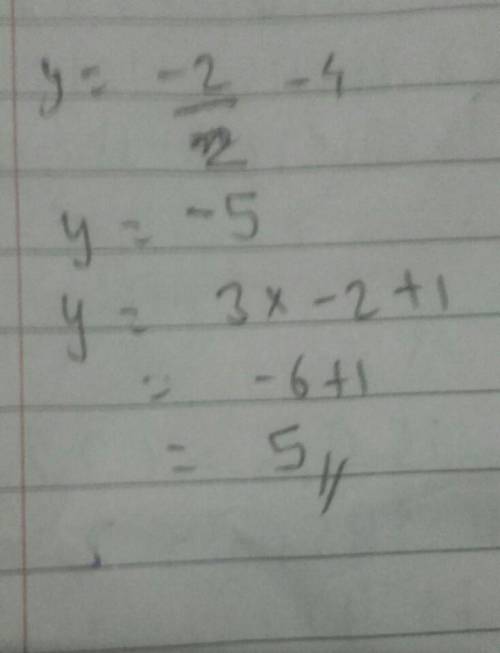 y = -2/2 - 4
y = -5
y = 3x - 2 + 1
= -6 + 1
= 5 //